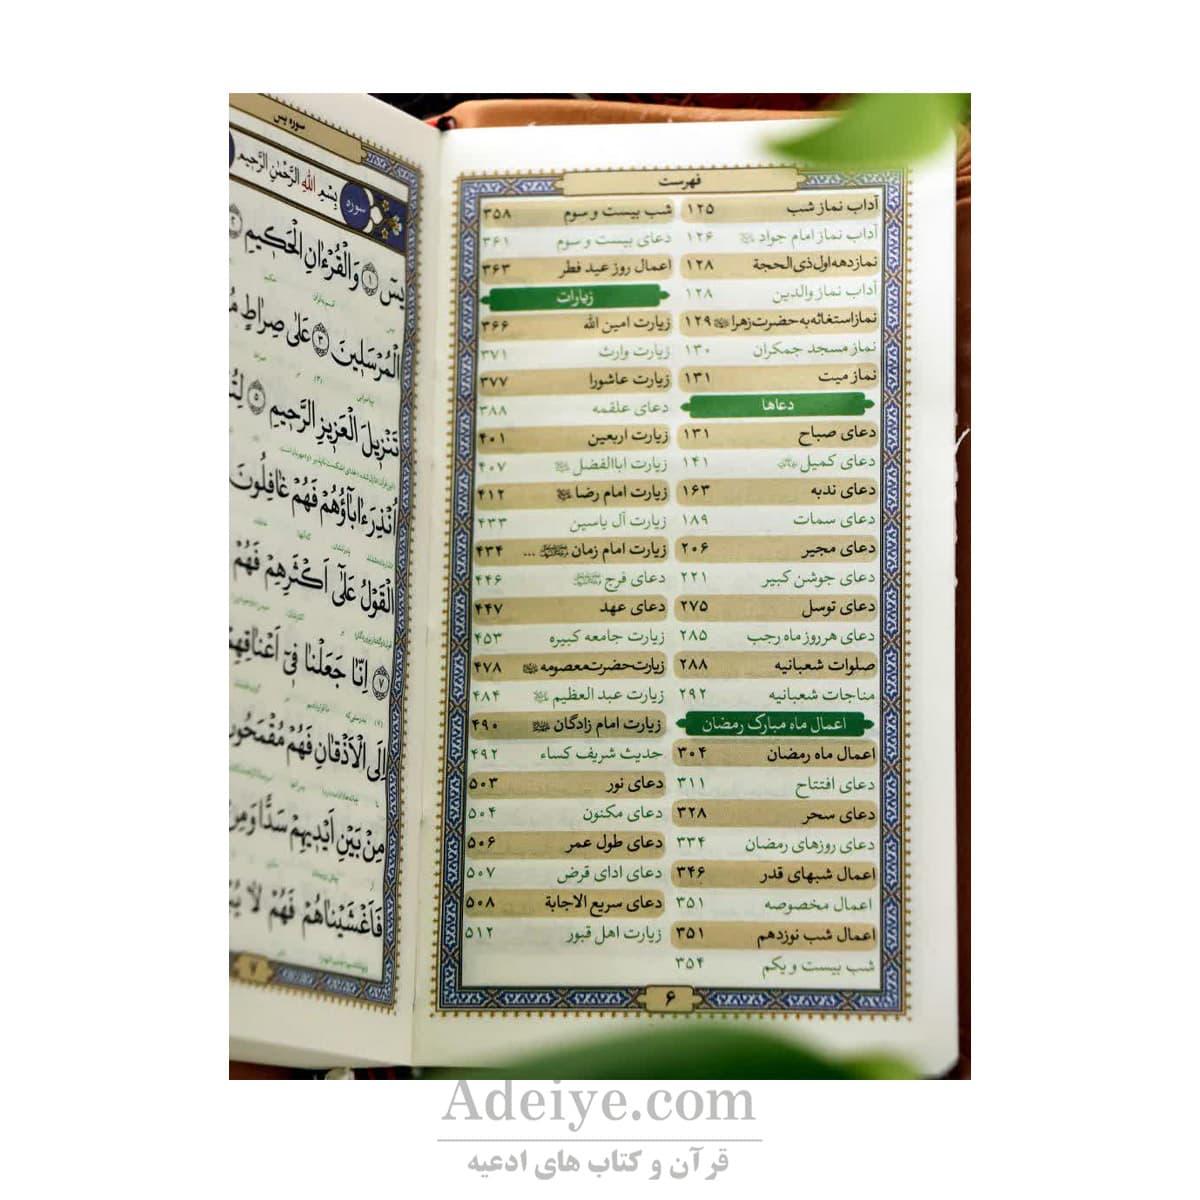 فهرست
آداب نماز شب ۱۲۵
آداب نماز امام جواد ۱۲۶
نماز دهه اول ذی الحجة ۱۲۸
آداب نماز والدین ۱۲۸
نماز استغاثه به حضرت زهرا ۱۲۹
نماز مسجد جمکران ۱۳۰
نماز میت ۱۳۱
دعاها
دعای صباح ۱۳۱
دعای کمیل ۱۴۱
دعای ندبه ۱۶۳
دعای سمات ۱۸۹
دعای مجیر ۲۰۶
دعای جوشن کبیر ۲۲۱
دعای توسل ۲۷۵
دعای هر روز ماه رجب ۲۸۵
صلوات شعبانیه ۲۸۸
مناجات شعبانیه ۲۹۲
اعمال ماه مبارک رمضان
اعمال ماه رمضان ۳۰۴
دعای افتتاح ۳۱۱
دعای سحر ۳۲۸
دعای روزهای رمضان ۳۳۴
اعمال شبهای قدر ۳۴۶
اعمال مخصوصه ۳۵۱
اعمال شب نوزدهم ۳۵۱
شب بیست و یکم ۳۵۴
شب بیست و سوم ۳۵۸
دعای بیست و سوم ۳۶۱
اعمال روز عید فطر ۳۶۳
زیارات
زیارت امین الله ۳۶۶
زیارت وارث ۳۷۱
زیارت عاشورا ۳۷۷
دعای علقمه ۳۸۸
زیارت اربعین ۴۰۱
زیارت اباالفضل ۴۰۷
زیارت امام رضا ۴۱۲
زیارت آل یاسین ۴۳۳
زیارت امام زمان ... ۴۳۴
دعای فرج ۴۴۶
دعای عهد ۴۴۷
زیارت جامعه کبیره ۴۵۳
زیارت حضرت معصومه ۴۷۸
زیارت عبد العظیم ۴۸۴
زیارت امام زادگان ۴۹۰
حدیث شریف کساء ۴۹۲
دعای نور ۵۰۳
دعای مکنون ۵۰۴
دعای طول عمر ۵۰۶
دعای ادای قرض ۵۰۷
دعای سریع الاجابة ۵۰۸
زیارت اهل قبور ۵۱۲
۶
سوره یس
سوره بِسْمِ اللهِ الرَّحْمٰنِ الرَّحيمِ
يسٓ ﴿۱﴾ وَالْقُرْءَانِ الْحَكيمِ ﴿۲﴾
الْمُرْسَلينَ ﴿۳﴾ عَلىٰ صِرَاطٍ
تَنْزيلَ الْعَزيزِ الرَّحيمِ ﴿۵﴾
اُنْذِرَ ءَابَآؤُهُمْ فَهُمْ غَافِلُونَ
الْقَوْلُ عَلىٰٓ اَكْثَرِهِمْ فَهُمْ
﴿۷﴾ اِنَّا جَعَلْنَا فىٓ اَعْنَاقِهِمْ
اِلَى الْاَذْقَانِ فَهُمْ مُقْمَحُونَ
مِنْ بَيْنِ اَيْديهِمْ سَدًّا وَمِنْ
فَاَغْشَيْنَاهُمْ فَهُمْ لَا
۷
Adeiye.com
قرآن و کتاب های ادعیه